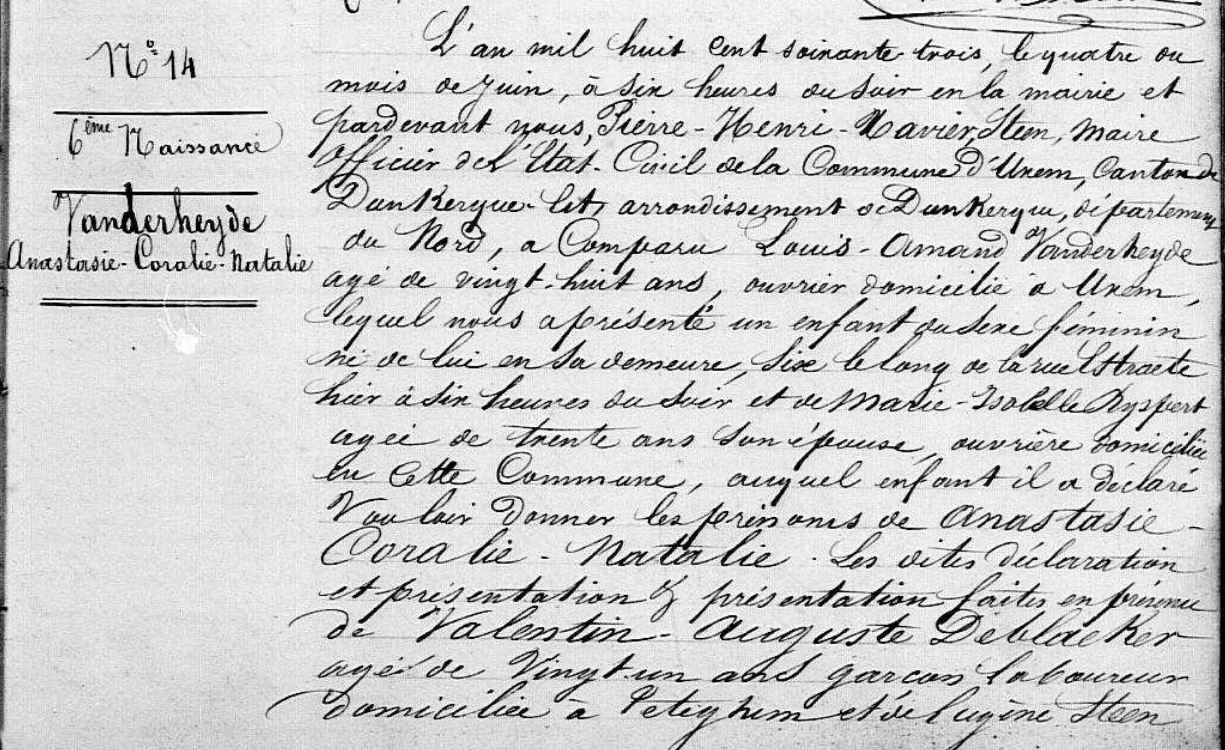 N° 14
6ème Naissance
Vanderheyde
Anastasie-Coralie-Natalie
L'an mil huit cent soixante trois, le quatre du
mois de Juin, à six heures du soir en la mairie et
pardevant nous, Pierre-Henri-Xavier, Steen, Maire
Officier de l'Etat-Civil de la Commune d'Uxem, Canton de
Dunkerque-Est, arrondissement de Dunkerque, département
du Nord, a Comparu Louis-Amand Vanderheyde
agé de vingt-huit ans, ouvrier domicilié à Uxem,
lequel nous a présenté un enfant du sexe féminin
né de lui en sa demeure, sise le long de la rue
hier à six heures du soir et de Marie-Isabelle Ryspert
agée de trente ans son épouse, ouvrière domiciliée
en Cette Commune, auquel enfant il a déclaré
Vouloir donner les prénoms de Anastasie-
Coralie-Natalie. Les dites déclaration
et présentation & présentation faites en présence
de Valentin-Auguste Deblacker
agé de Vingt-un ans garçon laboureur
domicilié à Teteghem et de Eugène Steen